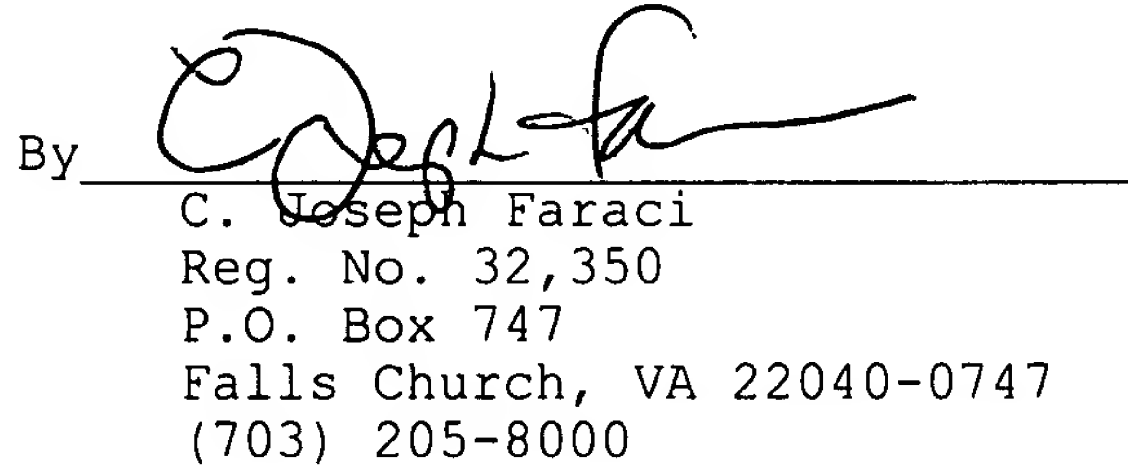 By
C. Joseph Faraci
Reg. No. 32,350
P.O. Box 747
Falls Church, VA 22040-0747
(703) 205-8000